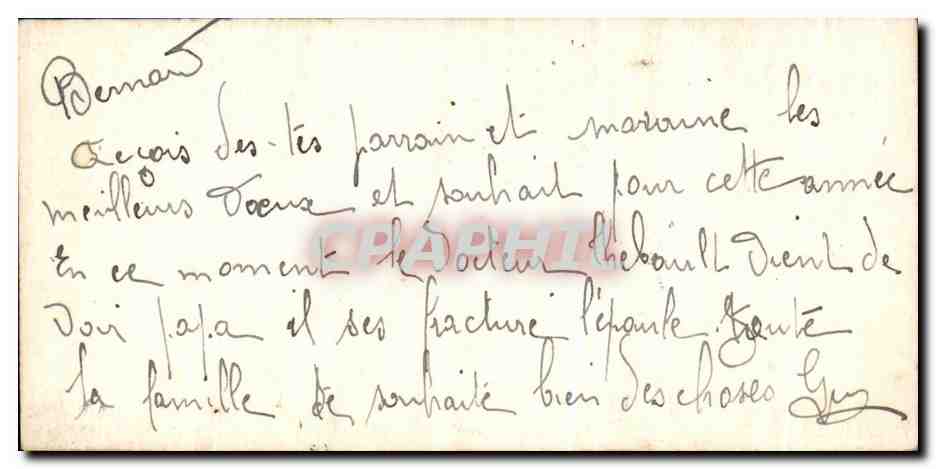 Bernard
Reçois des tes parrain et marraine les
meilleurs Voeux et souhait pour cette année
En ce moment le Docteur thebault Vient de
Voir papa il ses fracture l'épaule. toute
la famille te souhaite bien des choses Guy
CPAPHIL